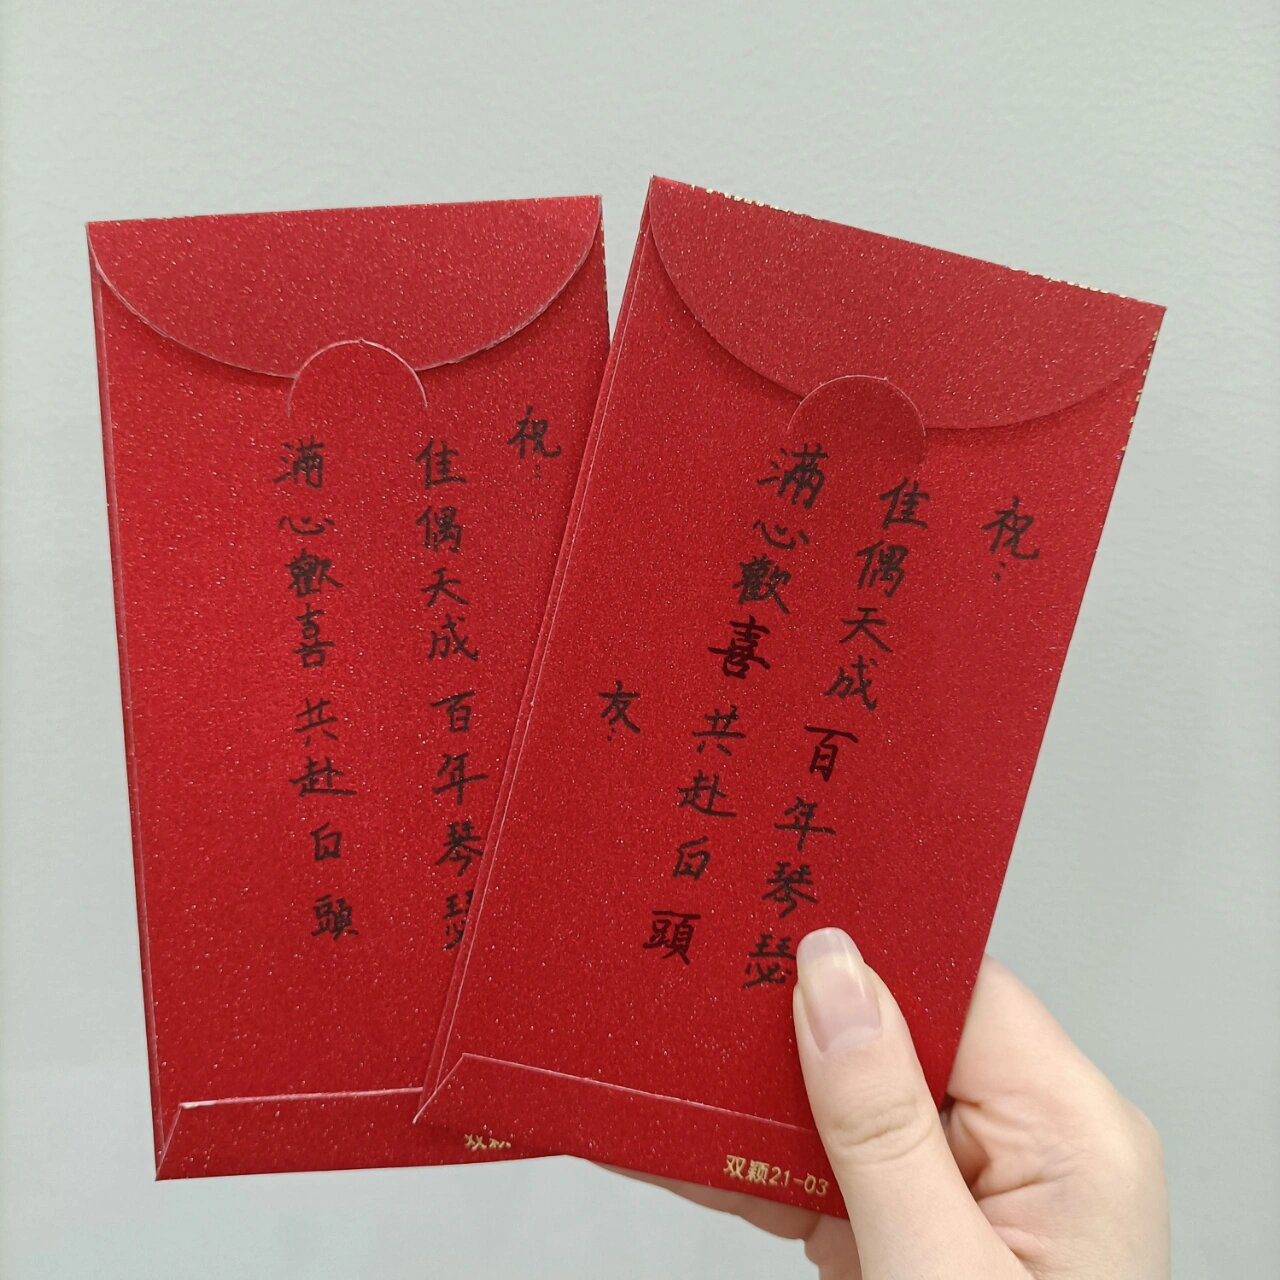 祝：
佳偶天成 百年琴瑟
滿心歡喜 共赴白頭
祝：
佳偶天成 百年琴瑟
滿心歡喜 共赴白頭
友：
双颖21-03